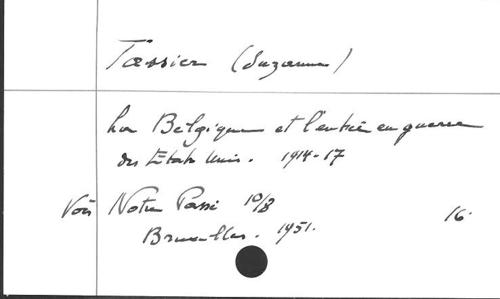 Tassier (Suzanne)
La Belgique et l'entrée en guerre
des Etats Unis. 1914-17
Voir Notre Passé 10/8
Bruxelles. 1951. 16.